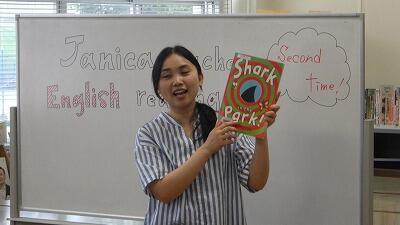 Janica
English
Second
Time!
Shark
Park!